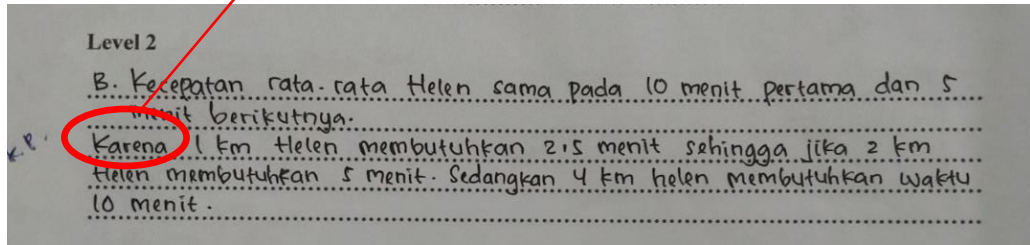 Level 2
B. Kecepatan rata-rata Helen sama pada 10 menit pertama dan 5
menit berikutnya.
K.P. Karena 1 km Helen membutuhkan 2,5 menit sehingga jika 2 km
Helen membutuhkan 5 menit. Sedangkan 4 km helen membutuhkan waktu
10 menit.